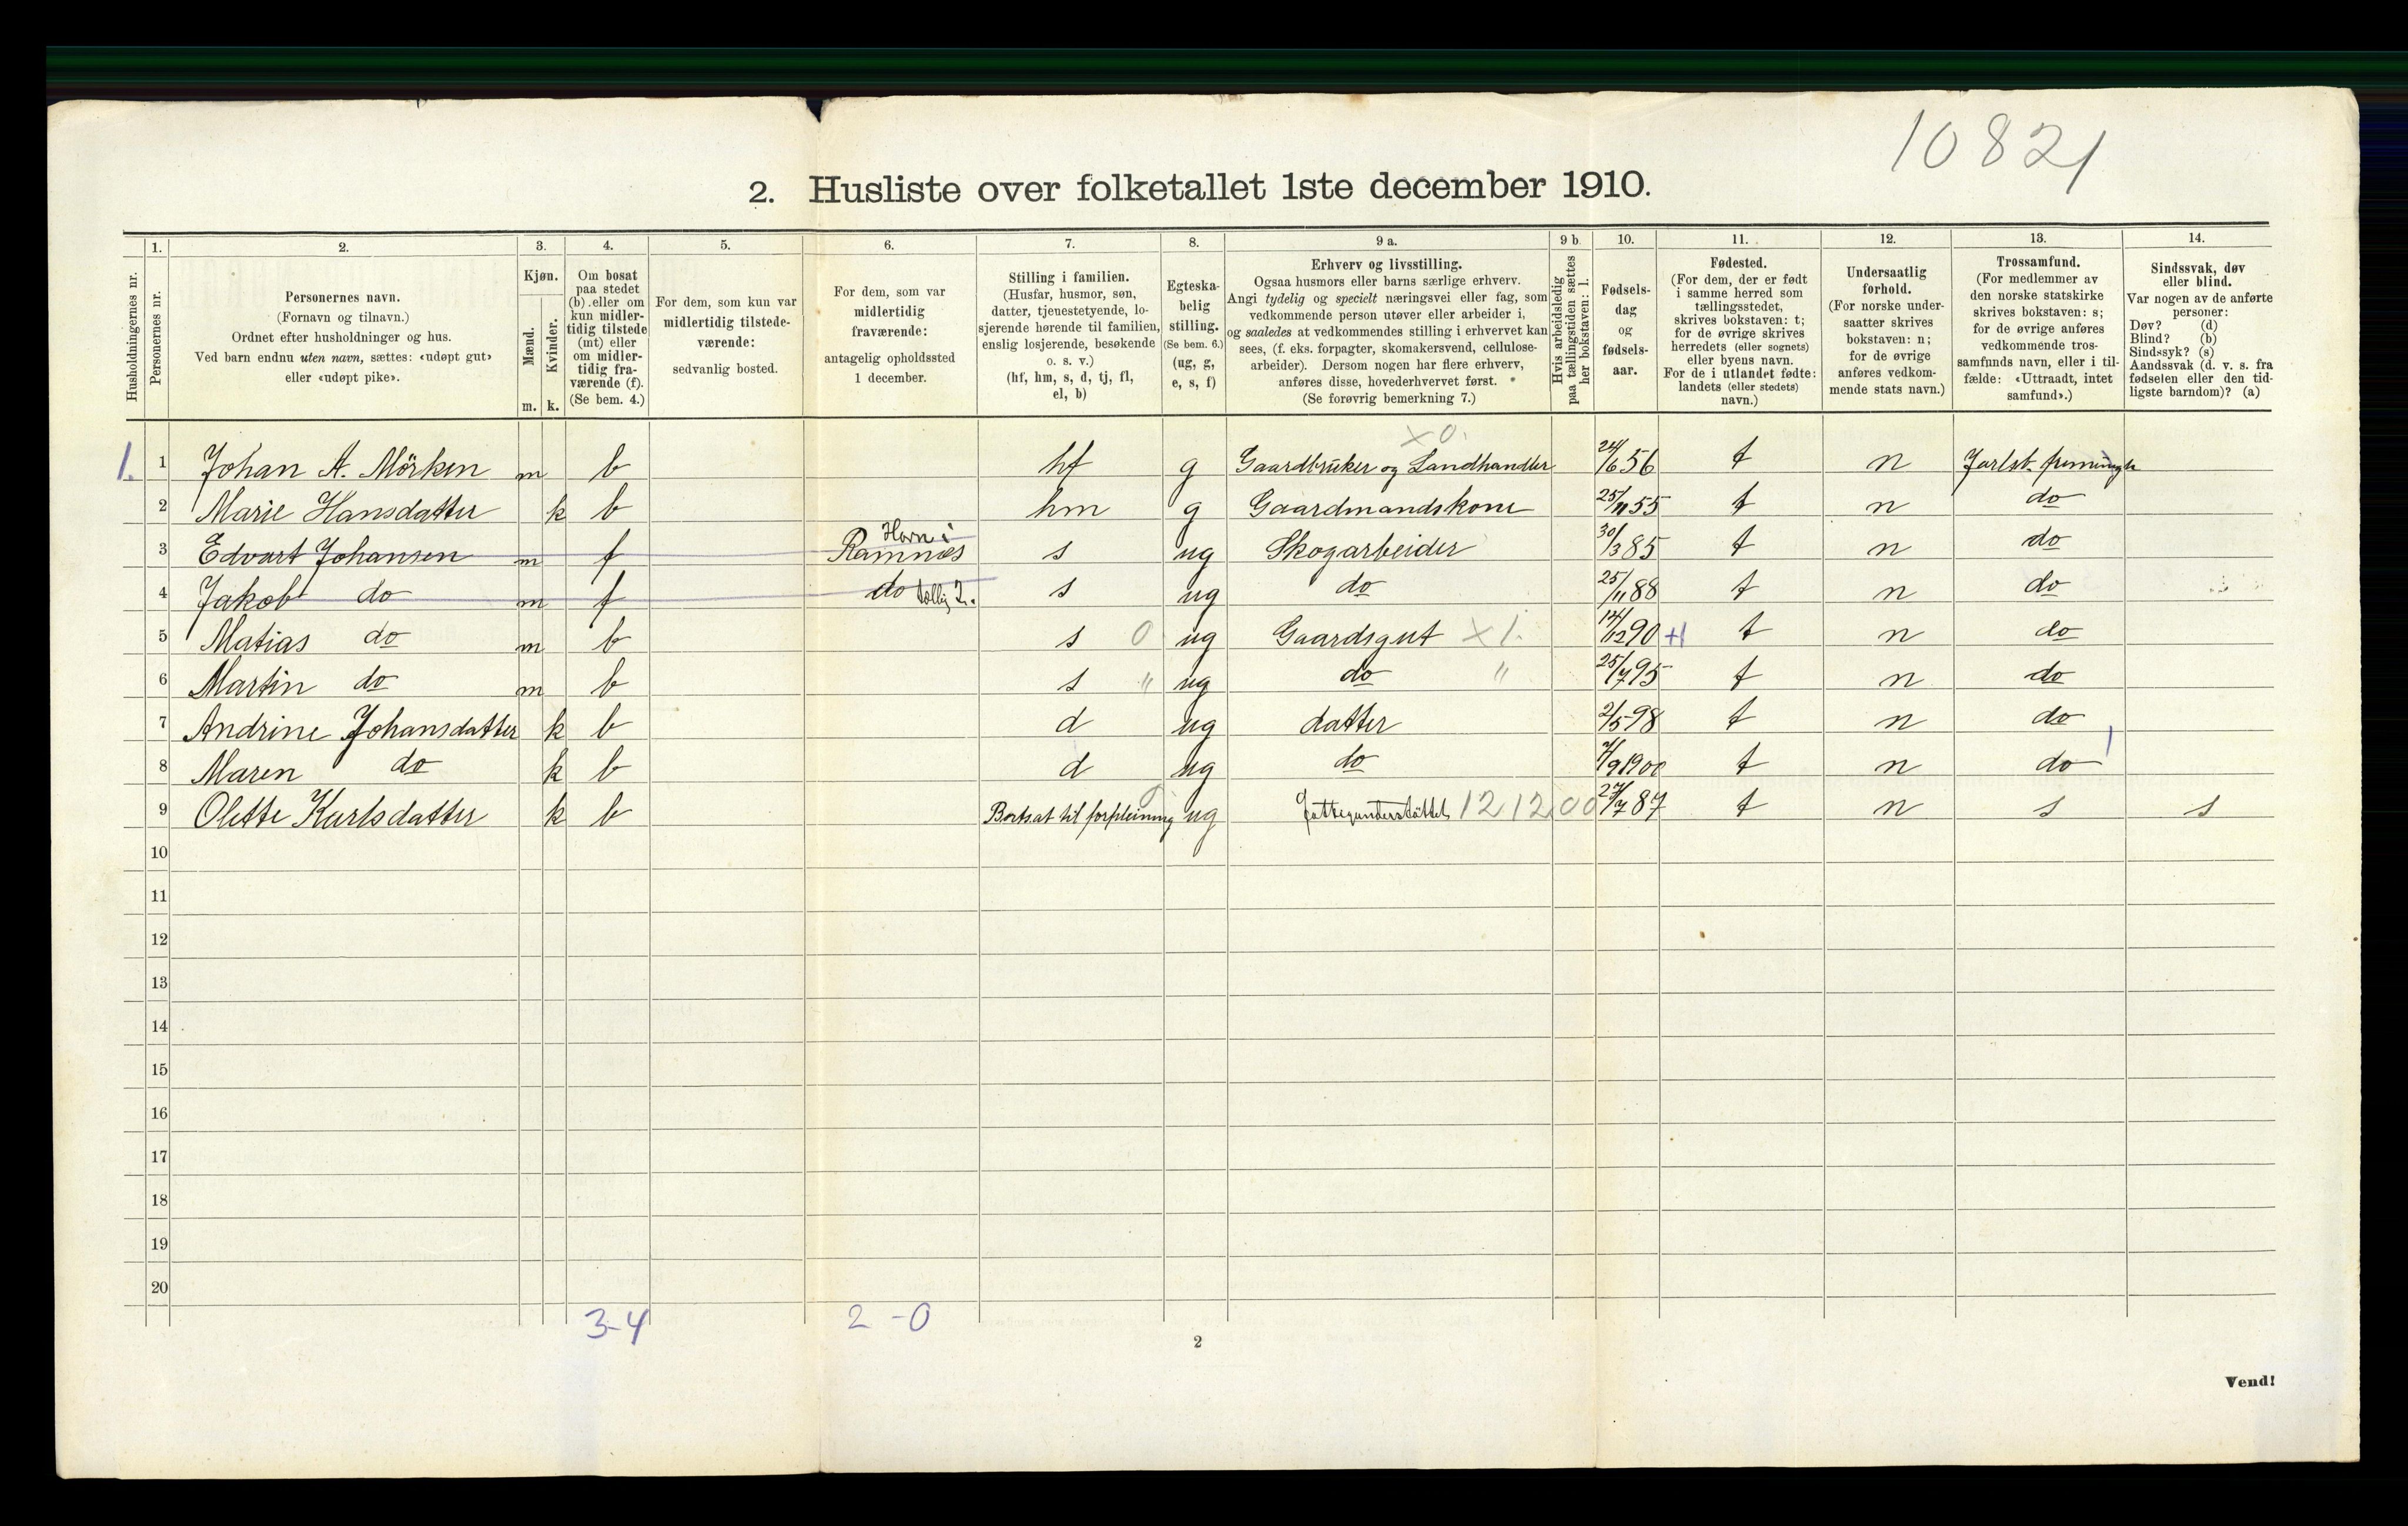 10821
2. Husliste over folketallet 1ste december 1910.
Husholdningernes nr.
1.
Personernes nr.
2.
Personernes navn.
(Fornavn og tilnavn.)
Ordnet efter husholdninger og hus.
Ved barn endnu uten navn, sættes: «udøpt gut»
eller «udøpt pike».
3.
Kjøn.
Mænd.
Kvinder.
m. k.
4.
Om bosat
paa stedet
(b) eller om
kun midler-
tidig tilstede
(mt) eller
om midler-
tidig fra-
værende (f).
(Se bem. 4.)
5.
For dem, som kun var
midlertidig tilstede-
værende:
sedvanlig bosted.
6.
For dem, som var
midlertidig
fraværende:
antagelig opholdssted
1 december.
7.
Stilling i familien.
(Husfar, husmor, søn,
datter, tjenestetyende, lo-
sjerende hørende til familien,
enslig losjerende, besøkende
o. s. v.)
(hf, hm, s, d, tj, fl,
el, b)
8.
Egteska-
belig
stilling.
(Se bem. 6.)
(ug, g,
e, s, f)
9 a.
Erhverv og livsstilling.
Ogsaa husmors eller barns særlige erhverv.
Angi tydelig og specielt næringsvei eller fag, som
vedkommende person utøver eller arbeider i,
og saaledes at vedkommendes stilling i erhvervet kan
sees, (f. eks. forpagter, skomakersvend, cellulose-
arbeider). Dersom nogen har flere erhverv,
anføres disse, hovederhvervet først.
(Se forøvrig bemerkning 7.)
9 b.
Hvis arbeidsledig
paa tællingstiden sættes
her bokstaven: l.
10.
Fødsels-
dag
og
fødsels-
aar.
11.
Fødested.
(For dem, der er født
i samme herred som
tællingsstedet,
skrives bokstaven: t;
for de øvrige skrives
herredets (eller sognets)
eller byens navn.
For de i utlandet fødte:
landets (eller stedets)
navn.)
12.
Undersaatlig
forhold.
(For norske under-
saatter skrives
bokstaven: n;
for de øvrige
anføres vedkom-
mende stats navn.)
13.
Trossamfund.
(For medlemmer av
den norske statskirke
skrives bokstaven: s;
for de øvrige anføres
vedkommende tros-
samfunds navn, eller i til-
fælde: «Uttraadt, intet
samfund».)
14.
Sindssvak, døv
eller blind.
Var nogen av de anførte
personer:
Døv? (d)
Blind? (b)
Sindssyk? (s)
Aandssvak (d. v. s. fra
fødselen eller den tid-
ligste barndom)? (a)
x 0.
1. 1 Johan A. Mörken m b hf g Gaardbruker og Landhandler 24/6 56 t n Jarlsb.
2 Marie Hansdatter k b hm g Gaardmandskone 25/11 55 t n do
Horn i
3 Edvart Johansen m f Ramnæs s ug Skogarbeider 30/3 85 t n do
4 Jakob do m f do s ug do 25/11 88 t n do
5 Matias do m b s 0 ug Gaardsgut x 1. 14/12 90 +1 t n do
6 Martin do m b s " ug do " 25/7 95 t n do
7 Andrine Johansdatter k b d ug datter 2/5 98 t n do
8 Maren do k b d ug do 7/9 1900 t n do
9 Olette Karlsdatter k b Bortsat til forpleining ug Fattigunderstöttet 12 12 00 27/7 87 t n s s
10
11
12
13
14
15
16
17
18
19
20
3-4 2-0
2
Vend!